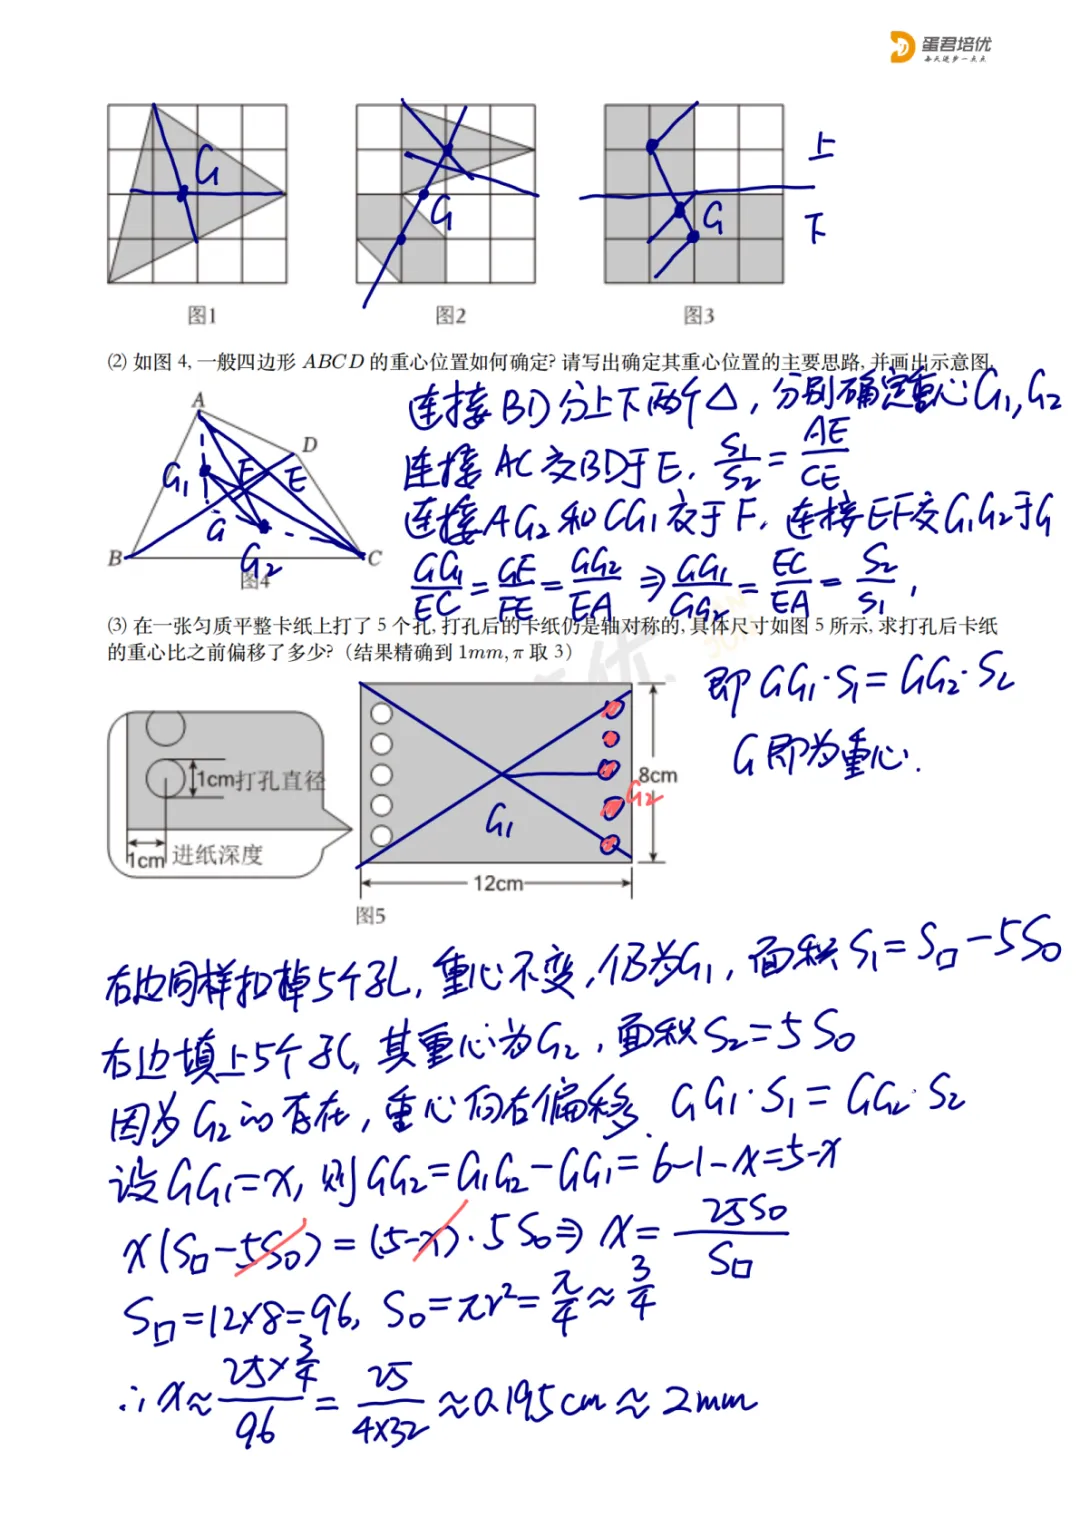 蛋君培优
每天进步一点点
G
G
G
上
下
图1
图2
图3
⑵ 如图 4, 一般四边形 ABCD 的重心位置如何确定? 请写出确定其重心位置的主要思路, 并画出示意图.
连接 BD 分上下两个△, 分别确定重心 G₁, G₂
连接 AC 交 BD 于 E. S₁/S₂ = AE/CE
连接 AG₂ 和 CG₁ 交于 F. 连接 EF 交 G₁G₂ 于 G
GG₁/EC = GF/FE = GG₂/EA ⇒ GG₁/GG₂ = EC/EA = S₂/S₁ ,
A
D
G₁
F
E
G
B
G₂
C
图4
⑶ 在一张匀质平整卡纸上打了 5 个孔, 打孔后的卡纸仍是轴对称的, 具体尺寸如图 5 所示, 求打孔后卡纸
的重心比之前偏移了多少? (结果精确到 1mm, π 取 3)
即 GG₁·S₁ = GG₂·S₂
G 即为重心.
1cm打孔直径
1cm 进纸深度
G₁
G₂
8cm
12cm
图5
右边同样扣掉5个孔, 重心不变, 仍为G₁, 面积 S₁=S□-5S₀
右边填上5个孔, 其重心为G₂, 面积 S₂=5S₀
因为 G₂ 的存在, 重心向右偏移. GG₁·S₁=GG₂·S₂
设 GG₁=x, 则 GG₂=G₁G₂-GG₁=6-1-x=5-x
x(S□-5S₀)=(5-x)·5S₀ ⇒ x=25S₀/S□
S□=12×8=96, S₀=πr²=π/4≈3/4
∴ x≈(25×3/4)/96=25/(4×32)≈0.195cm≈2mm